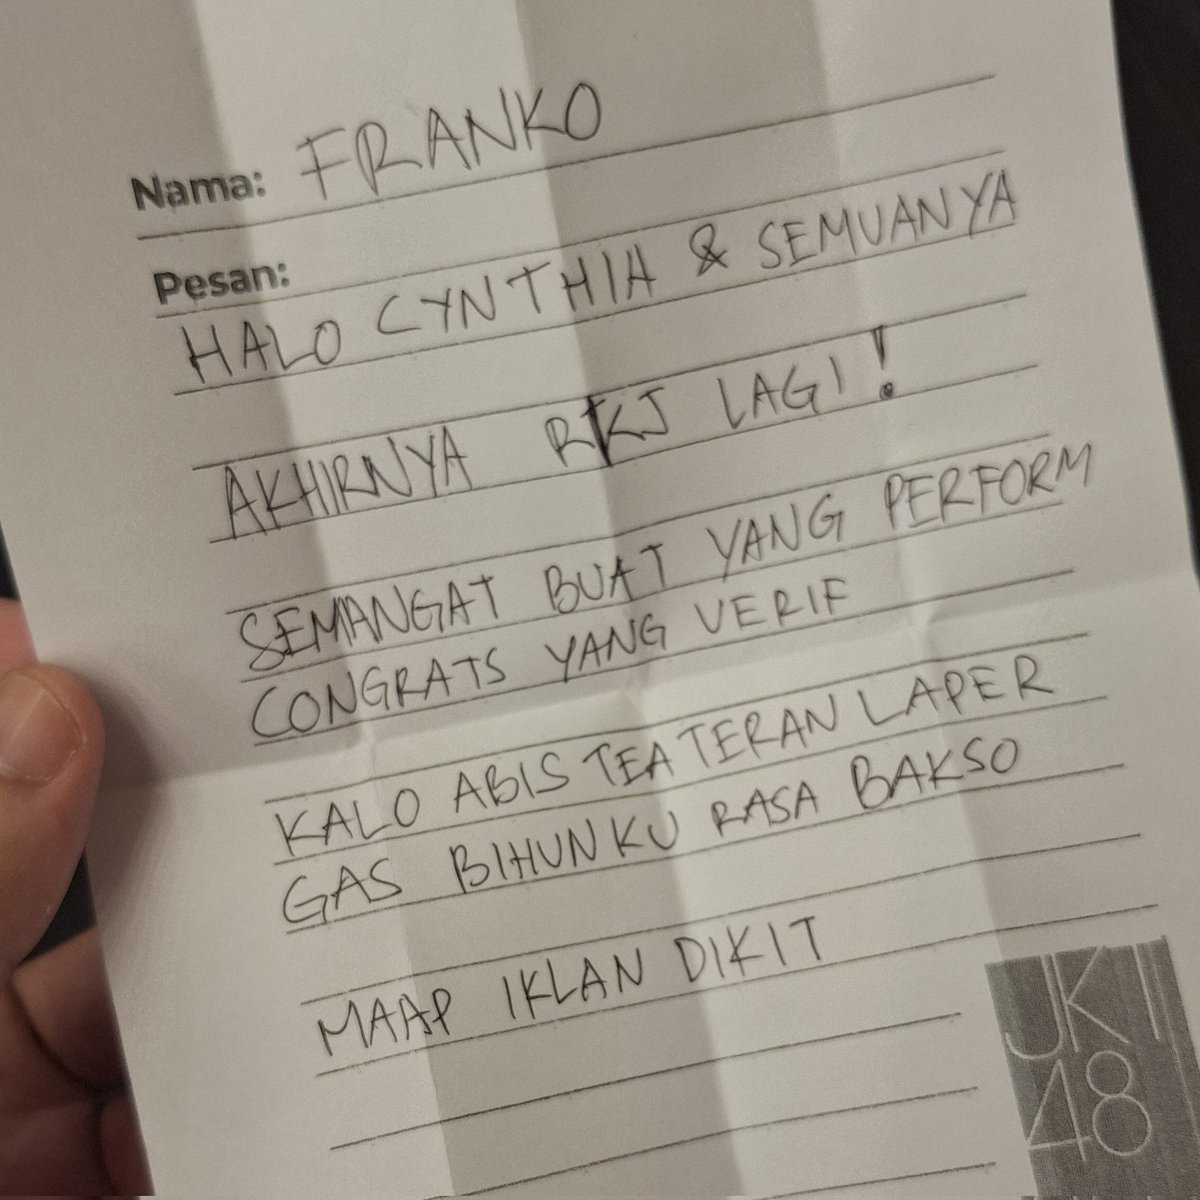 Nama: FRANKO
Pesan:
HALO CYNTHIA & SEMUANYA
AKHIRNYA RKJ LAGI!
SEMANGAT BUAT YANG PERFORM
CONGRATS YANG VERIF
KALO ABIS TEATERAN LAPER
GAS BIHUNKU RASA BAKSO
MAAP IKLAN DIKIT
JKT
48